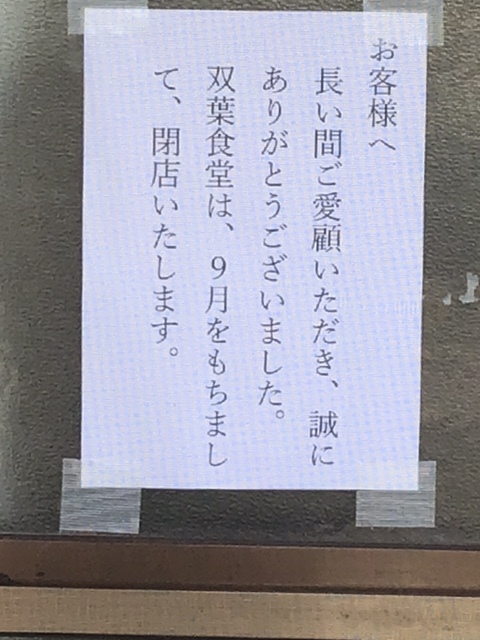 お客様へ
長い間ご愛顧いただき、誠に
ありがとうございました。
双葉食堂は、9月をもちまし
て、閉店いたします。